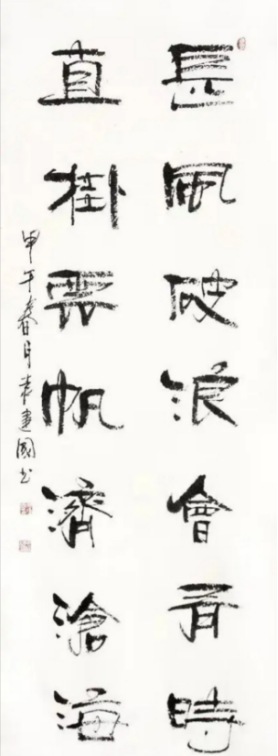 長風破浪會有時
直掛雲帆濟滄海
甲午春月朱建國书